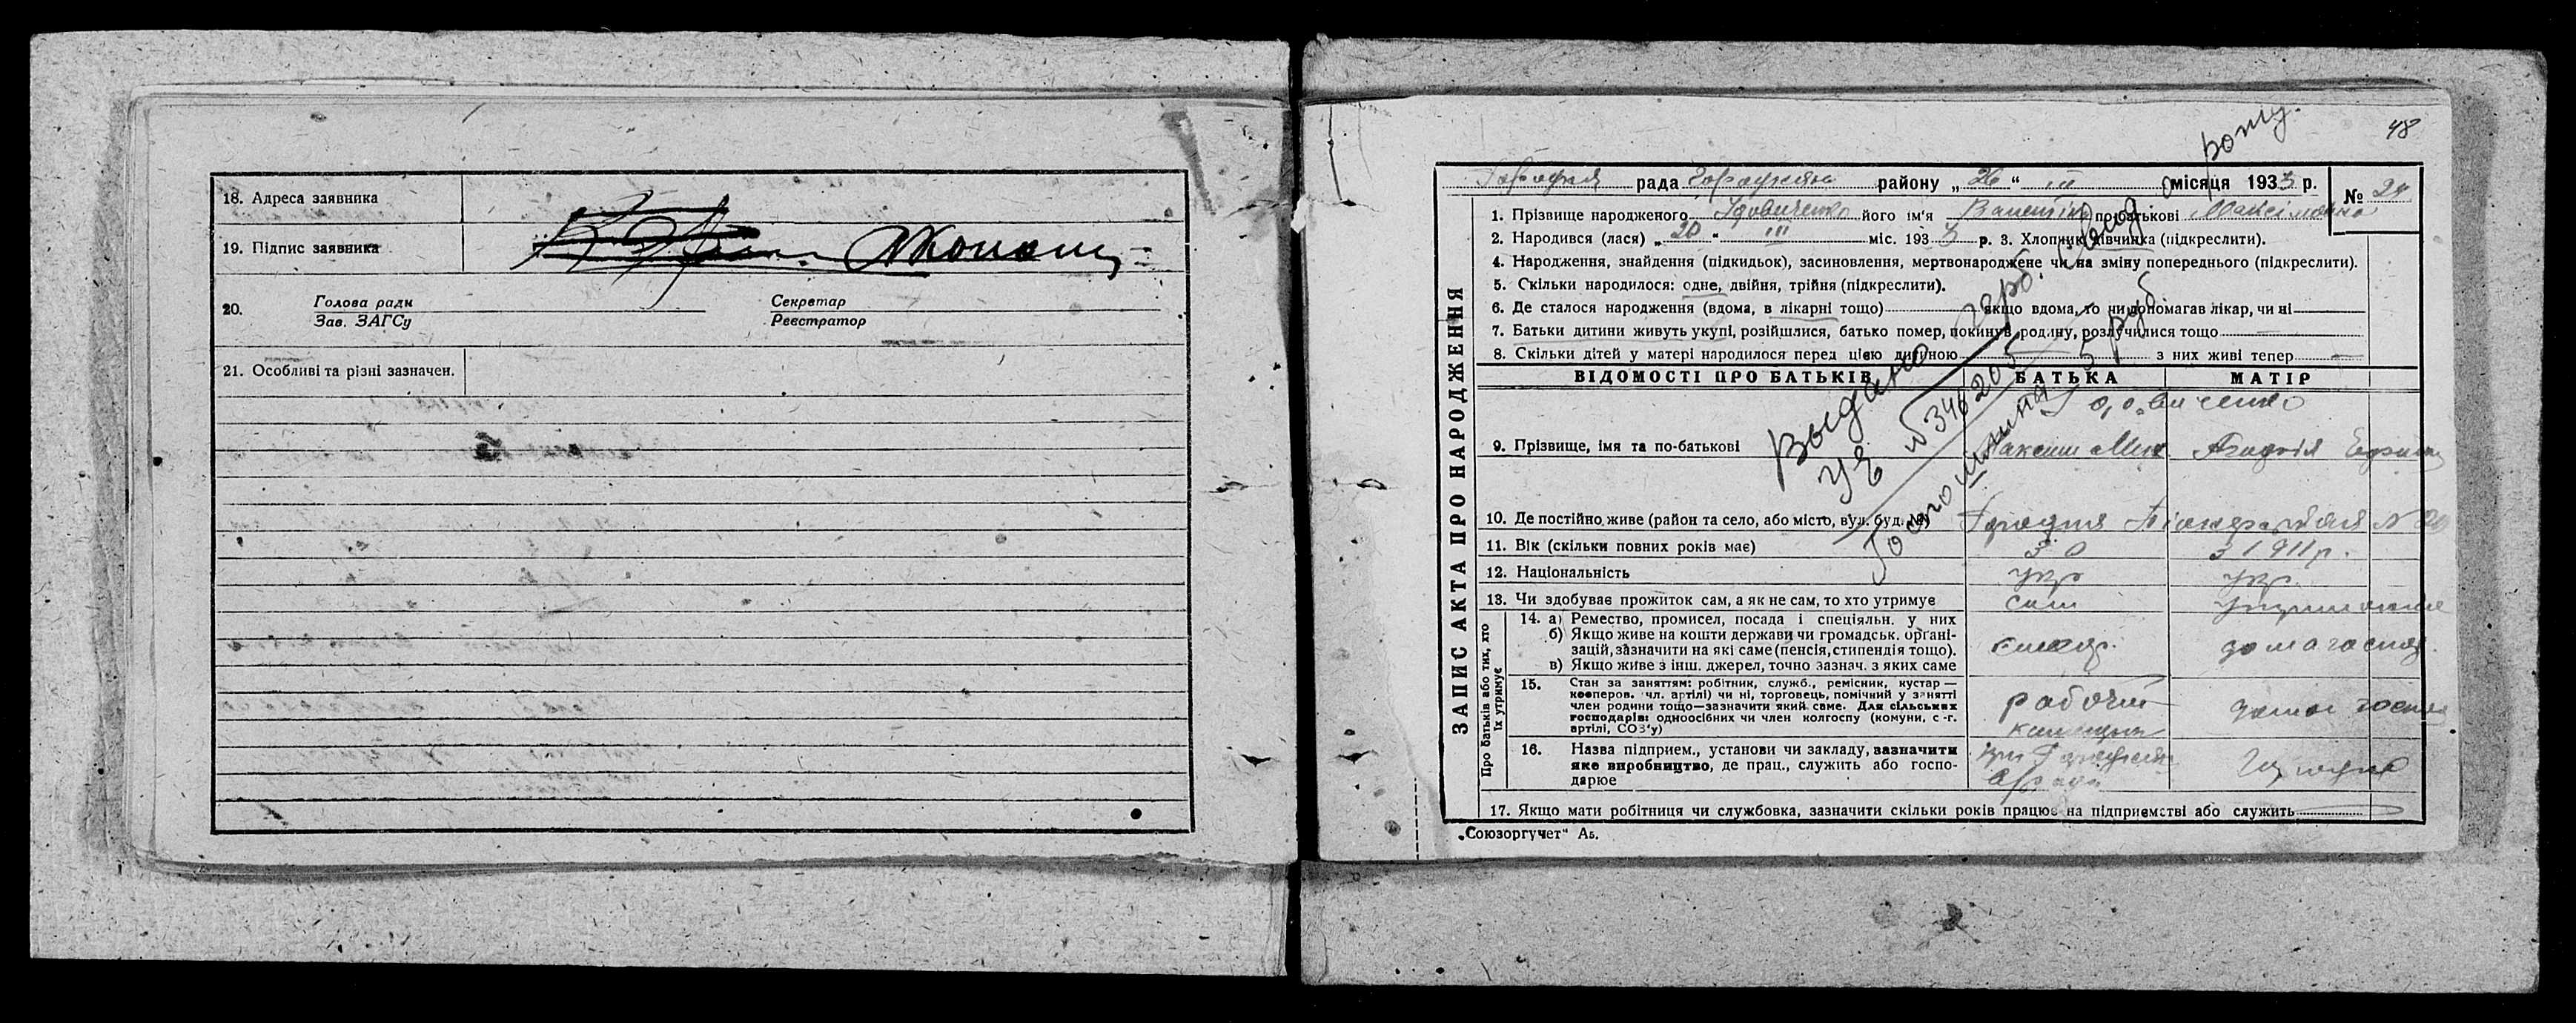 18. Адреса заявника
19. Підпис заявника
20. Голова ради
Зав. ЗАГСу
Секретар
Реєстратор
21. Особливі та різні зазначен.
48
Городня рада Городнян району „26“ III місяця 1933 р.
№ 24
ЗАПИС АКТА ПРО НАРОДЖЕННЯ
1. Прізвище народженого Удовиченко його ім'я по батькові Максімовна
2. Народився (лася) „20“ III міс. 1933 р. 3. Хлопчик, дівчинка (підкреслити).
4. Народження, знайдення (підкидьок), засиновлення, мертвонароджене чи на зміну попереднього (підкреслити).
5. Скільки народилося: одне, двійня, трійня (підкреслити).
6. Де сталося народження (вдома, в лікарні тощо) якщо вдома, то чи допомагав лікар, чи ні
7. Батьки дитини живуть укупі, розійшлися, батько помер, покинув родину, розлучилися тощо
8. Скільки дітей у матері народилося перед цією дитиною з них живі тепер
Выдано герб. Свид о рожд.
УЕ № 346205
Госпошлина 5 руб.
ВІДОМОСТІ ПРО БАТЬКІВ БАТЬКА МАТІР
Удовиченко
9. Прізвище, імя та по-батькові Максим Мих
10. Де постійно живе (район та село, або місто, вул. буд. №) Городня
11. Вік (скільки повних років має) 30 з 1911 р.
12. Національність укр укр.
13. Чи здобуває прожиток сам, а як не сам, то хто утримує сам
Про батьків або тих, хто їх утримує
14. а) Ремество, промисел, посада і спеціяльн. у них
б) Якщо живе на кошти держави чи громадськ. органі-
зацій, зазначити на які саме (пенсія, стипендія тощо).
в) Якщо живе з інш. джерел, точно зазнач. з яких саме
домагоспод.
15. Стан за заняттям: робітник, служб., ремісник, кустар —
кооперов. чл. артілі) чи ні, торговець, помічний у занятті
член родини тощо—зазначити який саме. Для сільських
господарів: одноосібних чи член колгоспу (комуни, с.-г.
артілі, СОЗ'у)
рабочий
16. Назва підприєм., установи чи закладу, зазначити
яке виробництво, де прац., служить або госпо-
дарює
17. Якщо мати робітниця чи службовка, зазначити скільки років працює на підприємстві або служить
„Союзоргучет“ Аб.